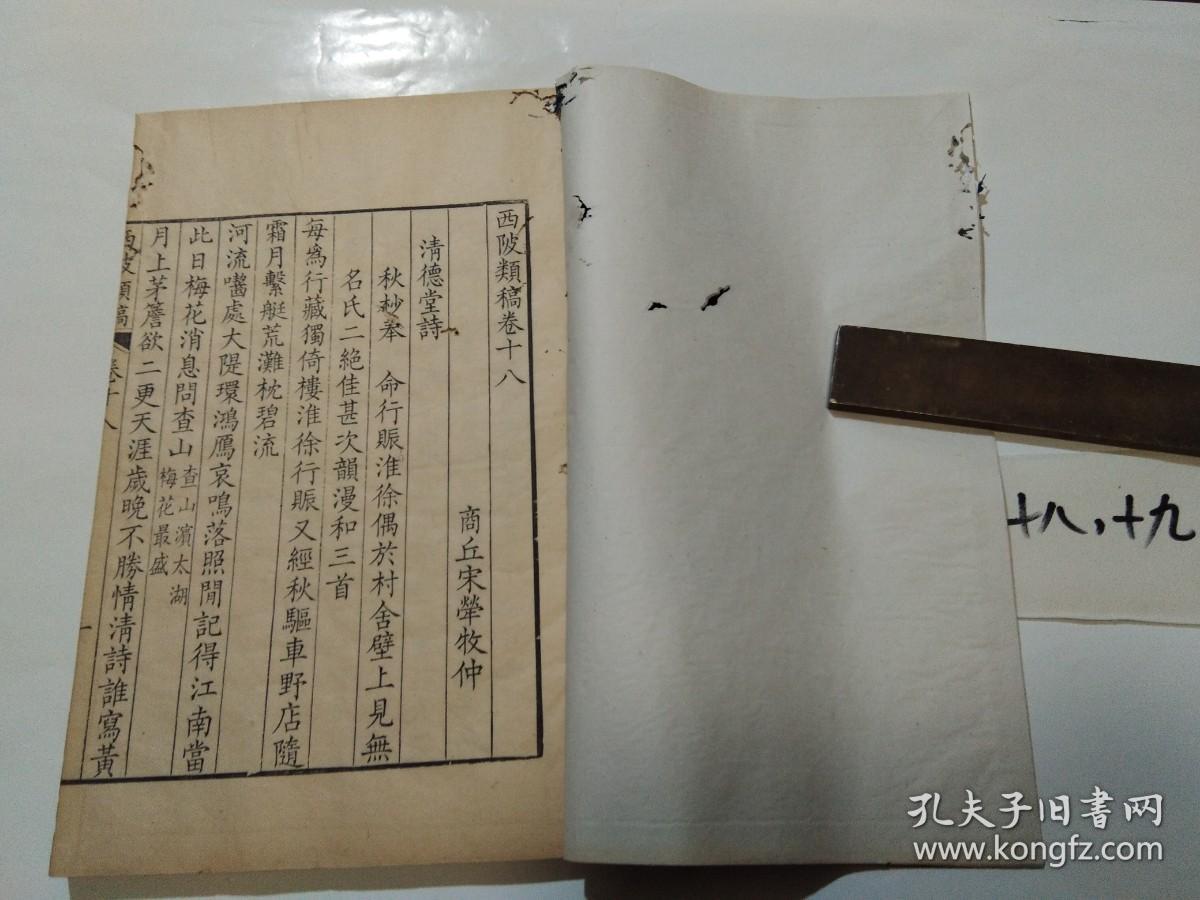 西陂類稿卷十八
商丘宋犖牧仲
清德堂詩
秋杪奉 命行賑淮徐偶於村舍壁上見無
名氏二絶佳甚次韻漫和三首
每爲行藏獨倚樓淮徐行賑又經秋驅車野店隨
霜月繫艇荒灘枕碧流
河流嚙處大隄環鴻鴈哀鳴落照閒記得江南當
此日梅花消息問查山查山濱太湖
梅花最盛
月上茅簷欲二更天涯歲晚不勝情淸詩誰寫黃
西陂類稿 卷十八 一
十八,十九
孔夫子旧书网
www.kongfz.com